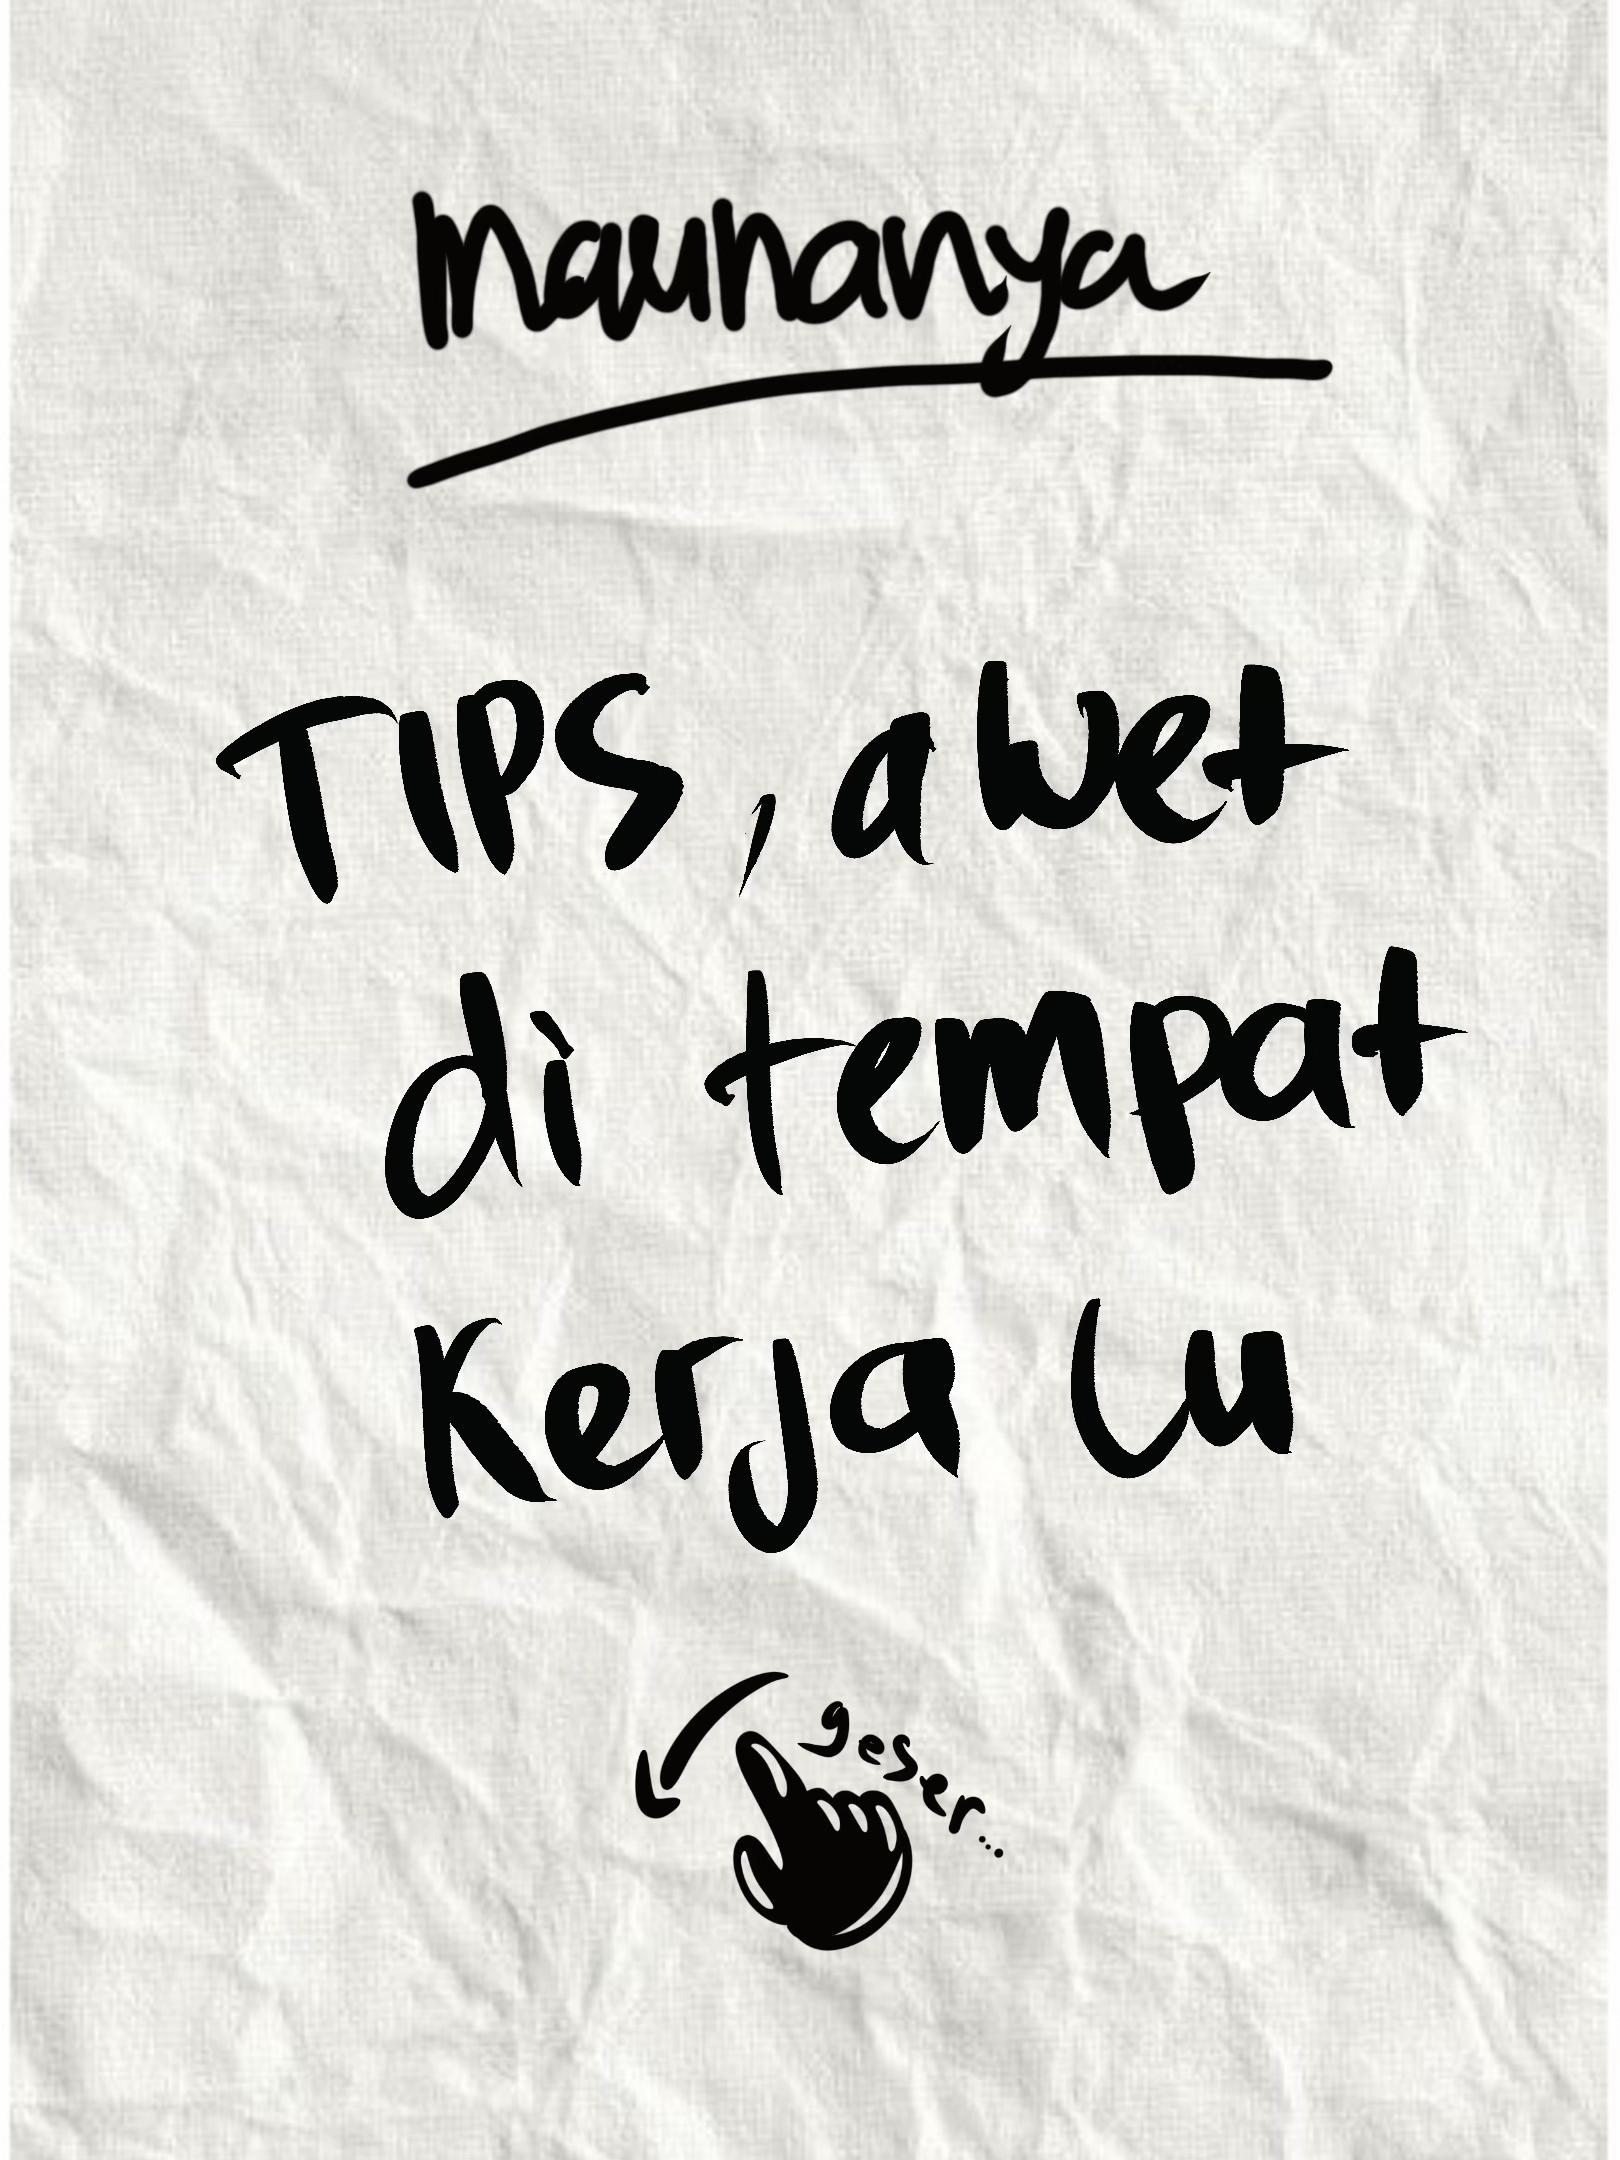 maunanya
TIPS, awet
di tempat
Kerja lu
geser...